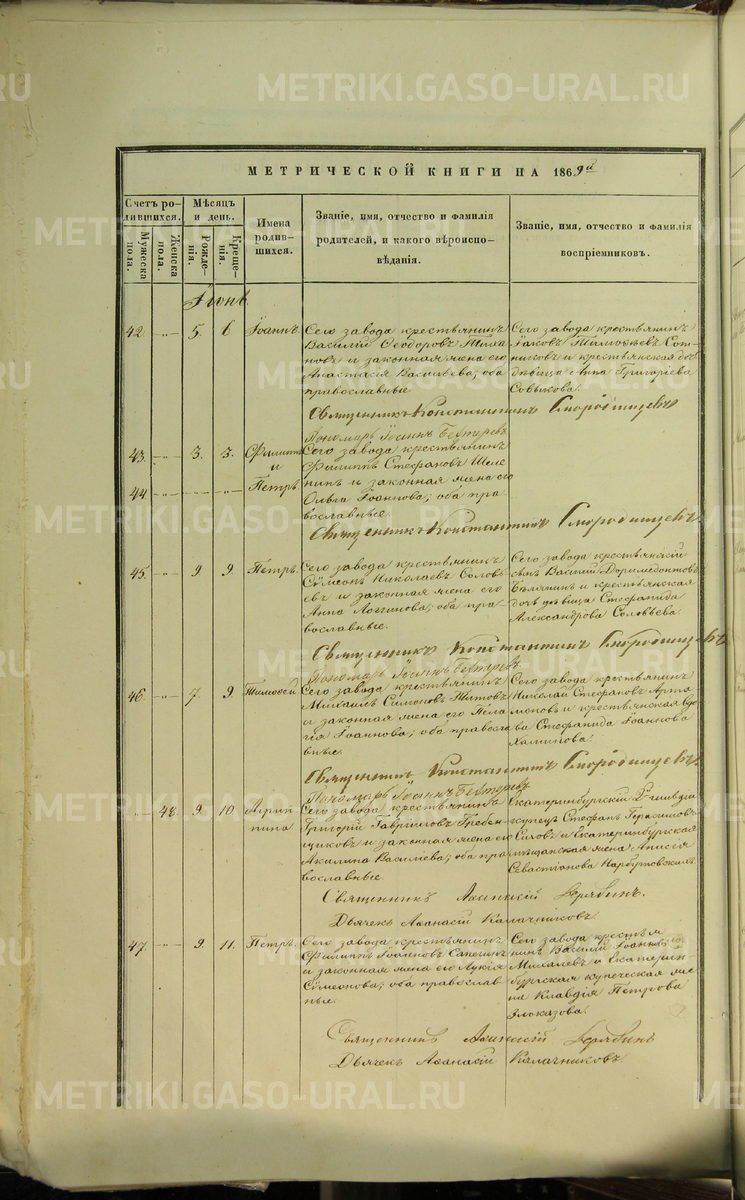 METRIKI.GASO-URAL.RU
МЕТРИЧЕСКОЙ КНИГИ НА 1869й
Счетъ родившихся.
Мѣсяцъ и день.
Имена родившихся.
Званіе, имя, отчество и фамилія родителей, и какого вѣроисповѣданія.
Званіе, имя, отчество и фамилія воспріемниковъ.
Мужеска пола.
Женска пола.
Рожденія.
Крещенія.
Іюнь
42. -"- 5. 6. Іоаннъ.
Сего завода крестьянинъ
Василій Ѳеодоровъ
и законная жена его
Анастасія Васильева; оба
православные
Сего завода крестьянинъ
Іаковъ Тимоѳеевъ Сотниковъ и крестьянская дочь
дѣвица Анна Григоріева
Священникъ Константинъ Смородинцевъ
Пономарь Іоаннъ
43. -"- 3. 3. Филиппъ
и
44 -"- Петръ
Сего завода крестьянинъ
Филиппъ Стефановъ
и законная жена его
Ольга Іоаннова; оба православные.
Священникъ Константинъ Смородинцевъ
45. -"- 9 9 Петръ.
Сего завода крестьянинъ
Сѵмеонъ Николаевъ Соловьевъ и законная жена его
Анна Логгинова; оба православные.
Сего завода крестьянскій
сынъ Василій Доримедонтовъ
и крестьянская
дочь дѣвица Стефанида
Александрова Соловьева.
Священникъ Константинъ Смородинцевъ
Пономарь Іоаннъ
46. -"- 7. 9 Тимоѳей
Сего завода крестьянинъ
Михаилъ Симоновъ Титовъ
и законная жена его Пелагія Іоаннова; оба православные.
Сего завода крестьянинъ
Николай Стефановъ Артамоновъ и крестьянская вдова Стефанида Іоаннова
Халтинова.
Священникъ Константинъ Смородинцевъ.
Пономарь Іоаннъ
48. 9 10. Агриппина
Сего завода крестьянинъ
Григорій Гавріиловъ Гребенщиковъ и законная жена его
Акилина Василіева; оба православные
Екатеринбургскій 2й гильдіи
купецъ Стефанъ Герасимовъ
и Екатеринбургская
мѣщанская жена Анисея
Севастіанова Нарбутовскихъ.
Священникъ Аѳанасій
Дьячекъ Аѳанасій Калачниковъ.
47. -"- 9. 11. Петръ.
Сего завода крестьянинъ
Филиппъ Іоанновъ Сапегинъ
и законная жена его Лукія
Сѵмеонова; оба православные.
Сего завода крестьянинъ Василій Іоанновъ
Михалевъ и Екатеринбургская купеческая жена Клавдія Петрова
Злоказова.
Священникъ Аѳанасій
Дьячекъ Аѳанасій Калачниковъ.